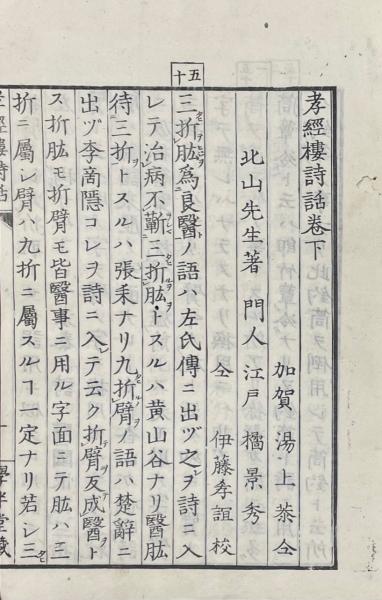 孝經樓詩話卷下
加賀 湯上 恭 仝
北山先生著 門人 江戸 橘景秀
仝 伊藤孝誼 校
五十
三折肱爲良醫ノ語ハ左氏傳ニ出ヅ之ヲ詩ニ入
レテ治病不蘄三折肱トスルハ黄山谷ナリ醫肱
待三折トスルハ張耒ナリ九折臂ノ語ハ楚辭ニ
出ヅ李商隱コレヲ詩ニ入レテ云ク折臂反成醫ト
ス折肱モ折臂モ皆醫事ニ用ル字面ニテ肱ハ三
折ニ屬シ臂ハ九折ニ屬スルヿ一定ナリ若シ三